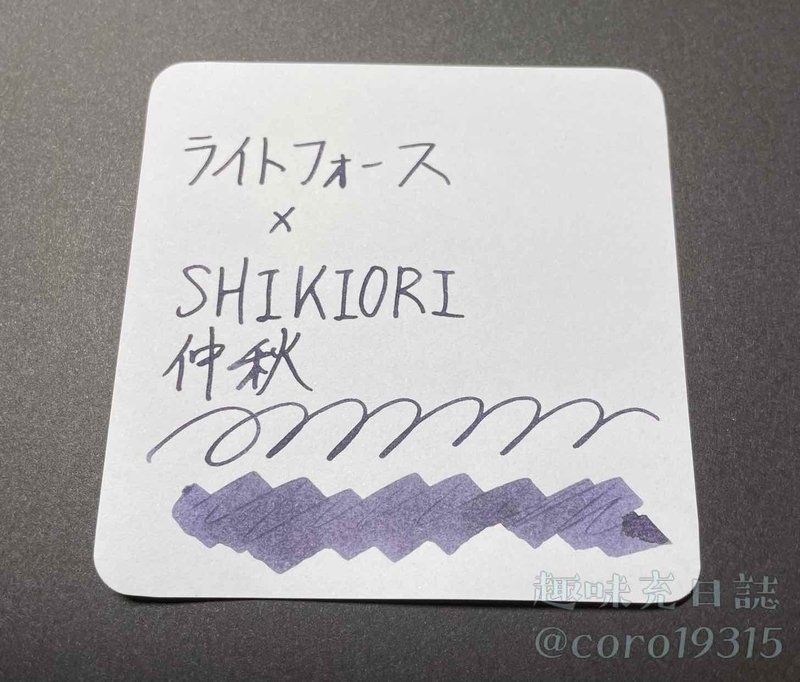 ライトフォース
×
SHIKIORI
仲秋
趣味充日誌
@coro19315